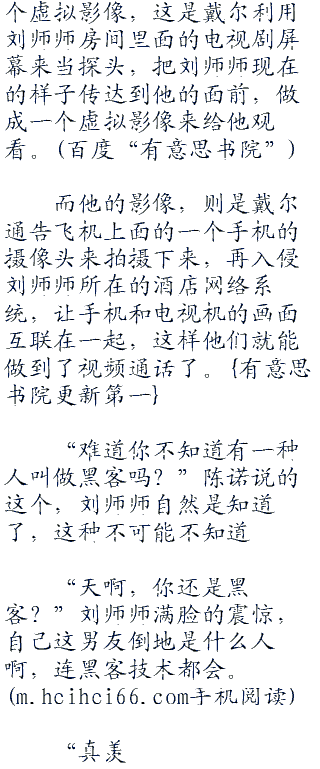 个虚拟影像，这是戴尔利用
刘师师房间里面的电视剧屏
幕来当探头，把刘师师现在
的样子传达到他的面前，做
成一个虚拟影像来给他观
看。(百度“有意思书院”)
而他的影像，则是戴尔
通告飞机上面的一个手机的
摄像头来拍摄下来，再入侵
刘师师所在的酒店网络系
统，让手机和电视机的画面
互联在一起，这样他们就能
做到了视频通话了。{有意思
书院更新第一}
“难道你不知道有一种
人叫做黑客吗？”陈诺说的
这个，刘师师自然是知道
了，这种不可能不知道
“天啊，你还是黑
客？”刘师师满脸的震惊，
自己这男友倒地是什么人
啊，连黑客技术都会。
(m.hcihci66.com手机阅读)
“真美